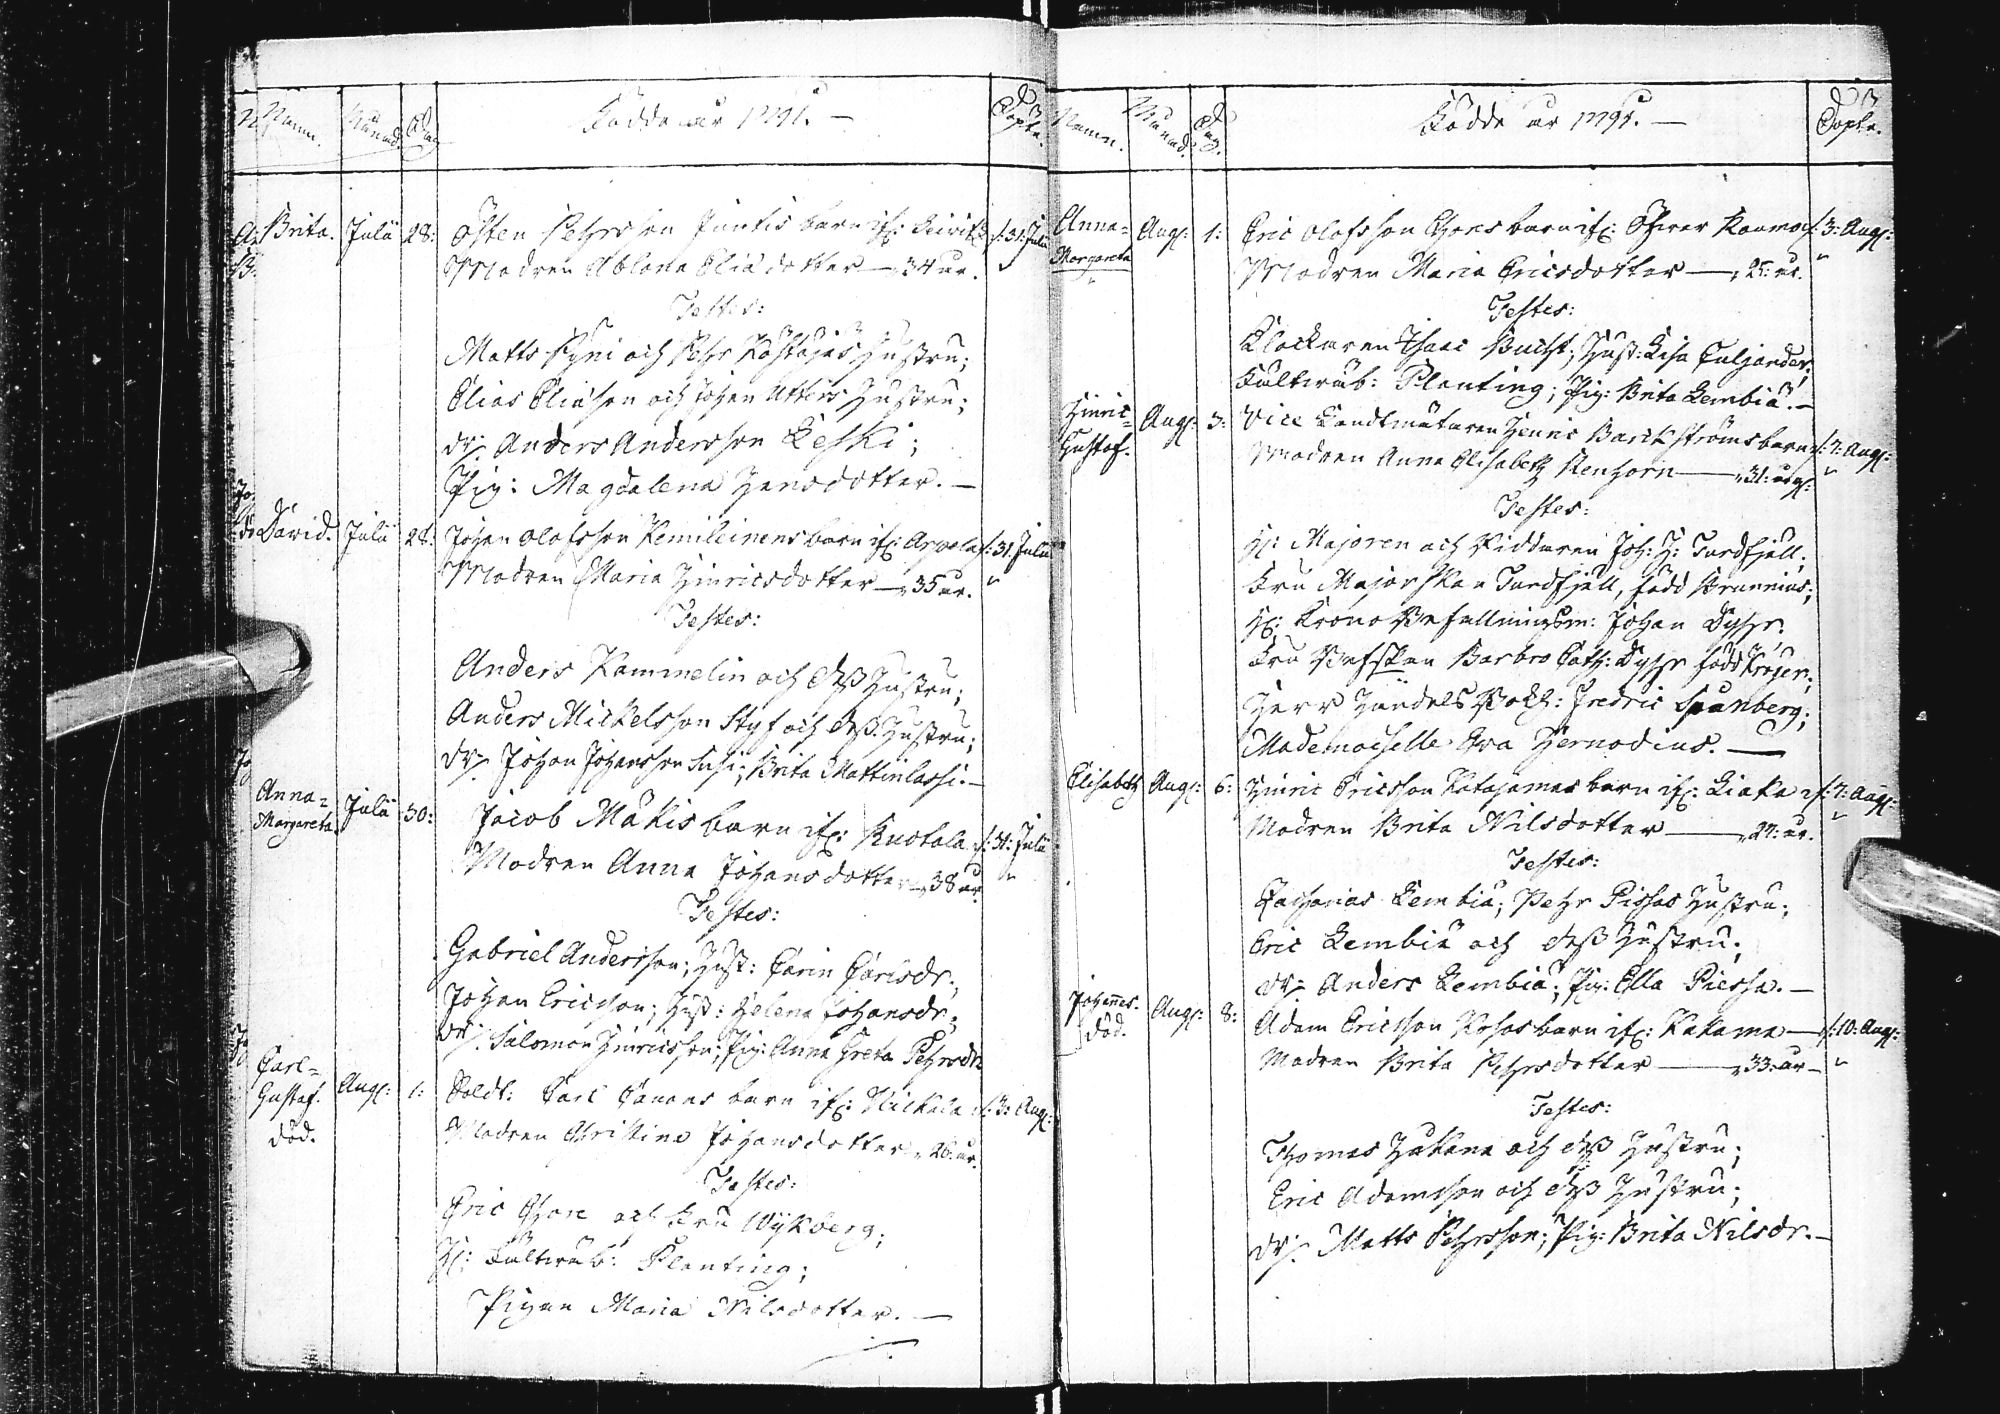 Namn. Månad. Dag. Födde år 1791. — Döpte.
Brita. Julii 28: Östen Pehrsson Juntis barn if: d: 31: Julii
Modren Abluna Eliædotter — 34 år.
Testes:
Matts Kyni och Pehr Hustru;
Elias Eliæson och Johan Hustru;
dr: Anders Andersson Keski;
Pig: Magdalena Hansdotter. —
David. Julii 28: Johan Olofsson Kemiläinens barn if: Arpela d: 31 Julii
Modren Maria Hinricsdotter — 35 år.
Testes:
Anders Kammelin och dess Hustru;
Anders Mickelsson Styf och dess Hustru;
dr: Johan Johansson Susi; Brita Mattinlassi. —
Anna=
Margareta Julii 30: Jacob Mäkis barn if: Kuckola d: 31: Julii
Modren Anna Johansdotter — 38 år
Testes:
Gabriel Andersson; Hust: Carin Carlsdr;
Johan Ericsson; Hust: Helena Johansdr;
dr: Salomon Hinricsson; Pig: Anna Greta Pehrsdr
Carl=
Gustaf. Aug: 1: Soldt: Carl barn if: d: 3: Aug:
död. Modren Christina Johansdotter 26: år.
Testes:
Eric Thore och Fru Wykberg;
H: Fältwäb: Planting;
Pigan Maria Nilsdotter. —
Namn. Månad. Dag. Födde år 1791. — Döpte.
Anna= Aug: 1: Eric Olofsson Thores barn if: Öfwer Raumo d: 3: Aug:
Margareta Modren Maria Ericsdotter — 25: år.
Testes:
Klockaren Isaac Bucht; Hust: Lisa
Fältwäb: Planting; Pig: Brita Lembiä. —
Hinric=
Gustaf. Aug: 3: Vice Landtmätaren Henric Barckströms barn d: 7: Aug:
Modren Anna Elisabeth Renhorn — 31: år
Testes:
H: Majoren och Riddaren Joh: H: Turdfjell;
Fru Majorskan Turdfjell, född Brunnius;
H: Krono Befallningsm: Johan Dyhr.
Fru Bef:skan Barbro Cath: Dyhr född Kröger;
Herr Handels Bokh: Fredric Spånberg;
Mademoiselle Eva Hernodius. —
Elisabeth Aug: 6: Hinric Ericsson Katajamas barn if: Liaka d: 7: Aug:
Modren Brita Nilsdotter — 27: år.
Testes:
Zacharias Lembiä; Pehr Hustru;
Eric Lembiä och dess Hustru;
dr: Anders Lembiä; Pig: Ella —
Johannes. Aug: 8: Adam Ericsson barn if: Kakama — d: 10: Aug:
död. Modren Brita Pehrsdotter — 33: år —
Testes:
Thomas Hakana och dess Hustru;
Eric Adamsson och dess Hustru;
dr: Matts Pehrsson; Pig: Brita Nilsdr. —